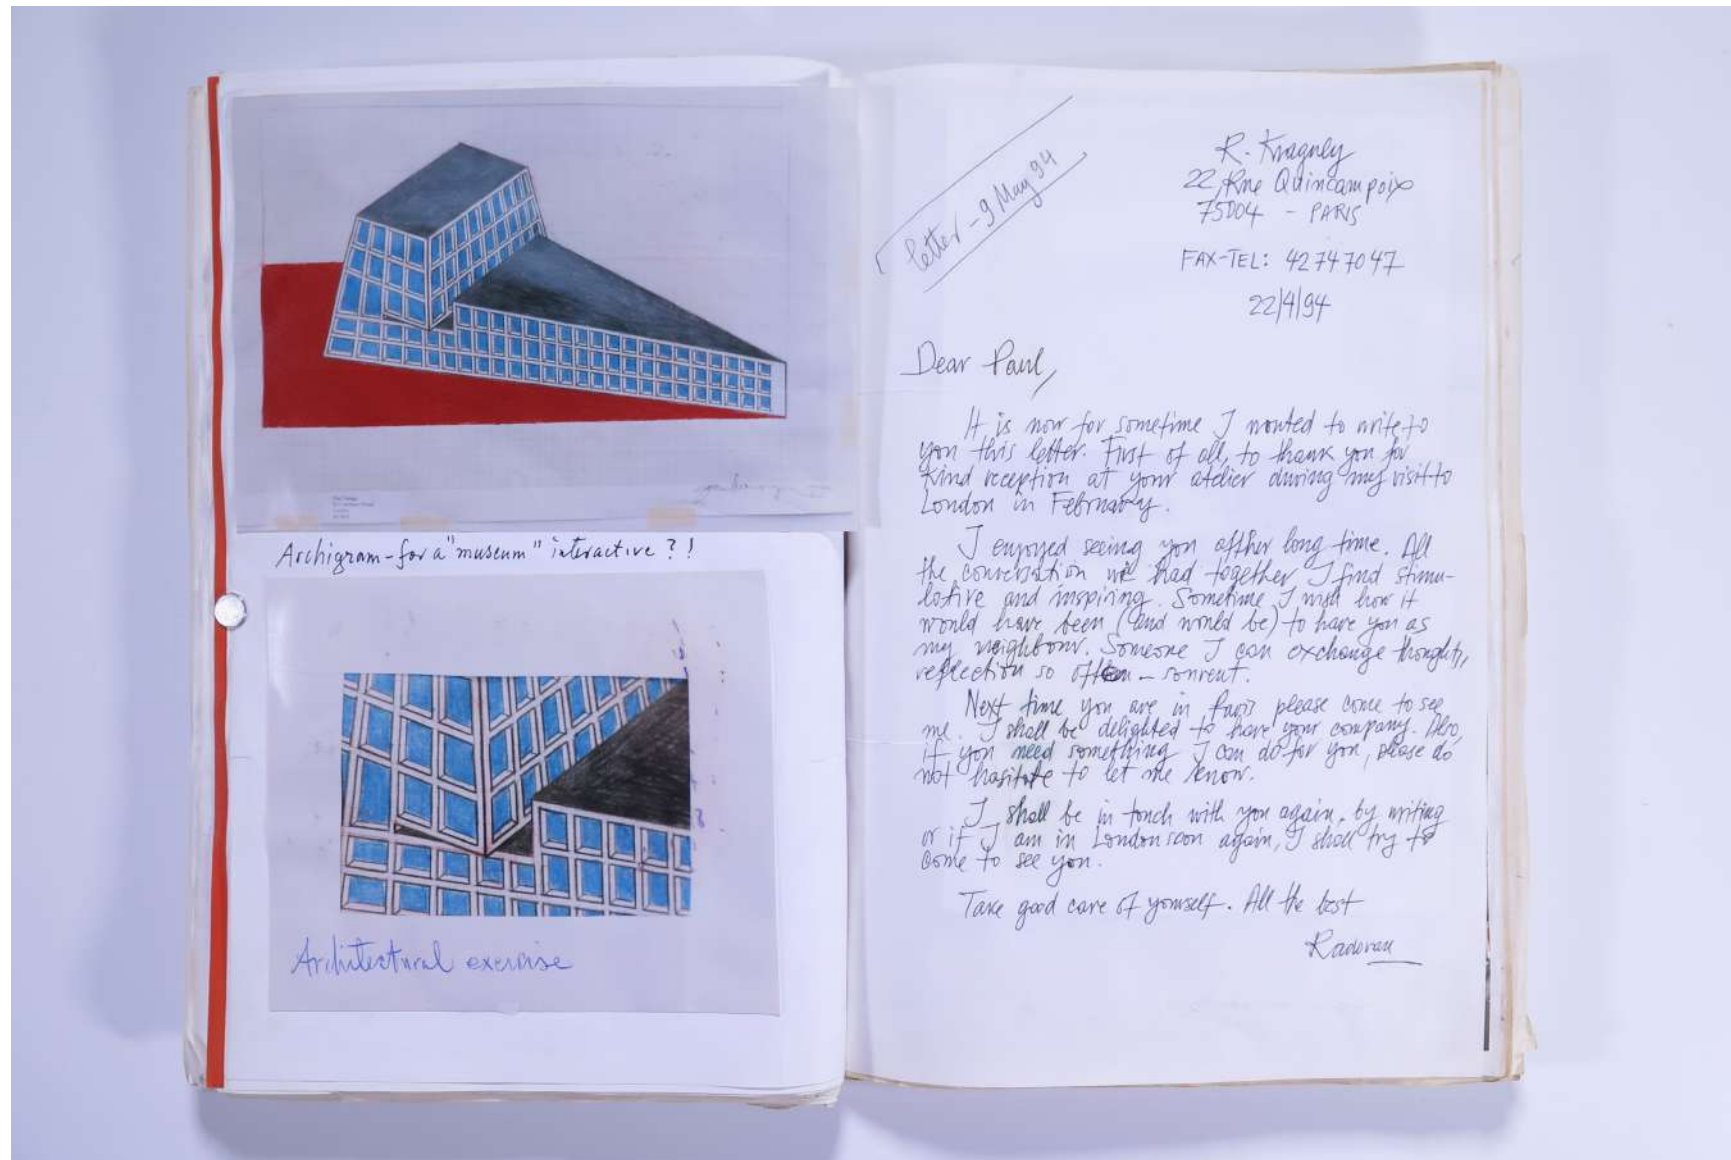 Archigram-for a "museum" interactive ? !
Architectural exercise
letter - 9 May 94
R. Kragney
22, Rue Quincampoix
75004 - PARIS
FAX-TEL: 42747047
22/4/94
Dear Paul,
It is now for sometime I wonted to write to
you this letter. First of all, to thank you for
kind reception at your atelier during my visit to
London in February.
I enjoyed seeing you afther long time. All
the conversation we had together I find stimu-
lative and inspiring. Sometime I wish how it
would have been (and would be) to have you as
my neighbour. Someone I can exchange thoughts,
reflection so often - souvent.
Next time you are in Paris please come to see
me. I shall be delighted to have your company. Also,
if you need something I can do for you, please do
not hasitate to let me know.
I shall be in touch with you again, by writing
or if I am in London soon again, I shall try to
come to see you.
Take good care of yourself. All the best
Radovan